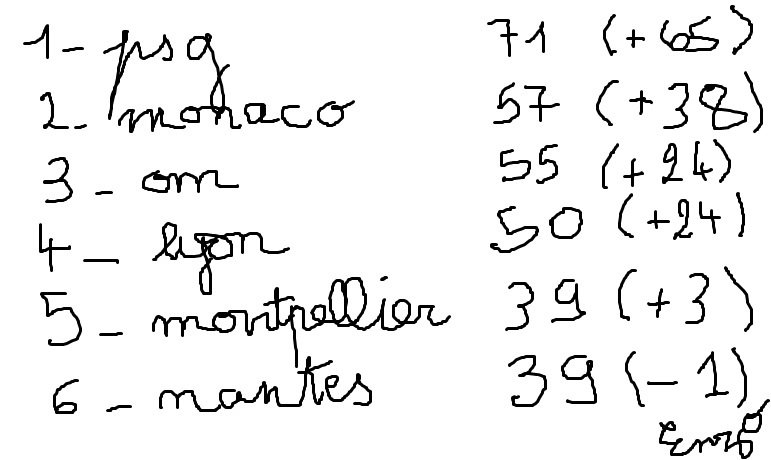 1- psg 71 (+65)
2- monaco 57 (+38)
3- om 55 (+24)
4- lyon 50 (+24)
5- montpellier 39 (+3)
6- nantes 39 (-1)